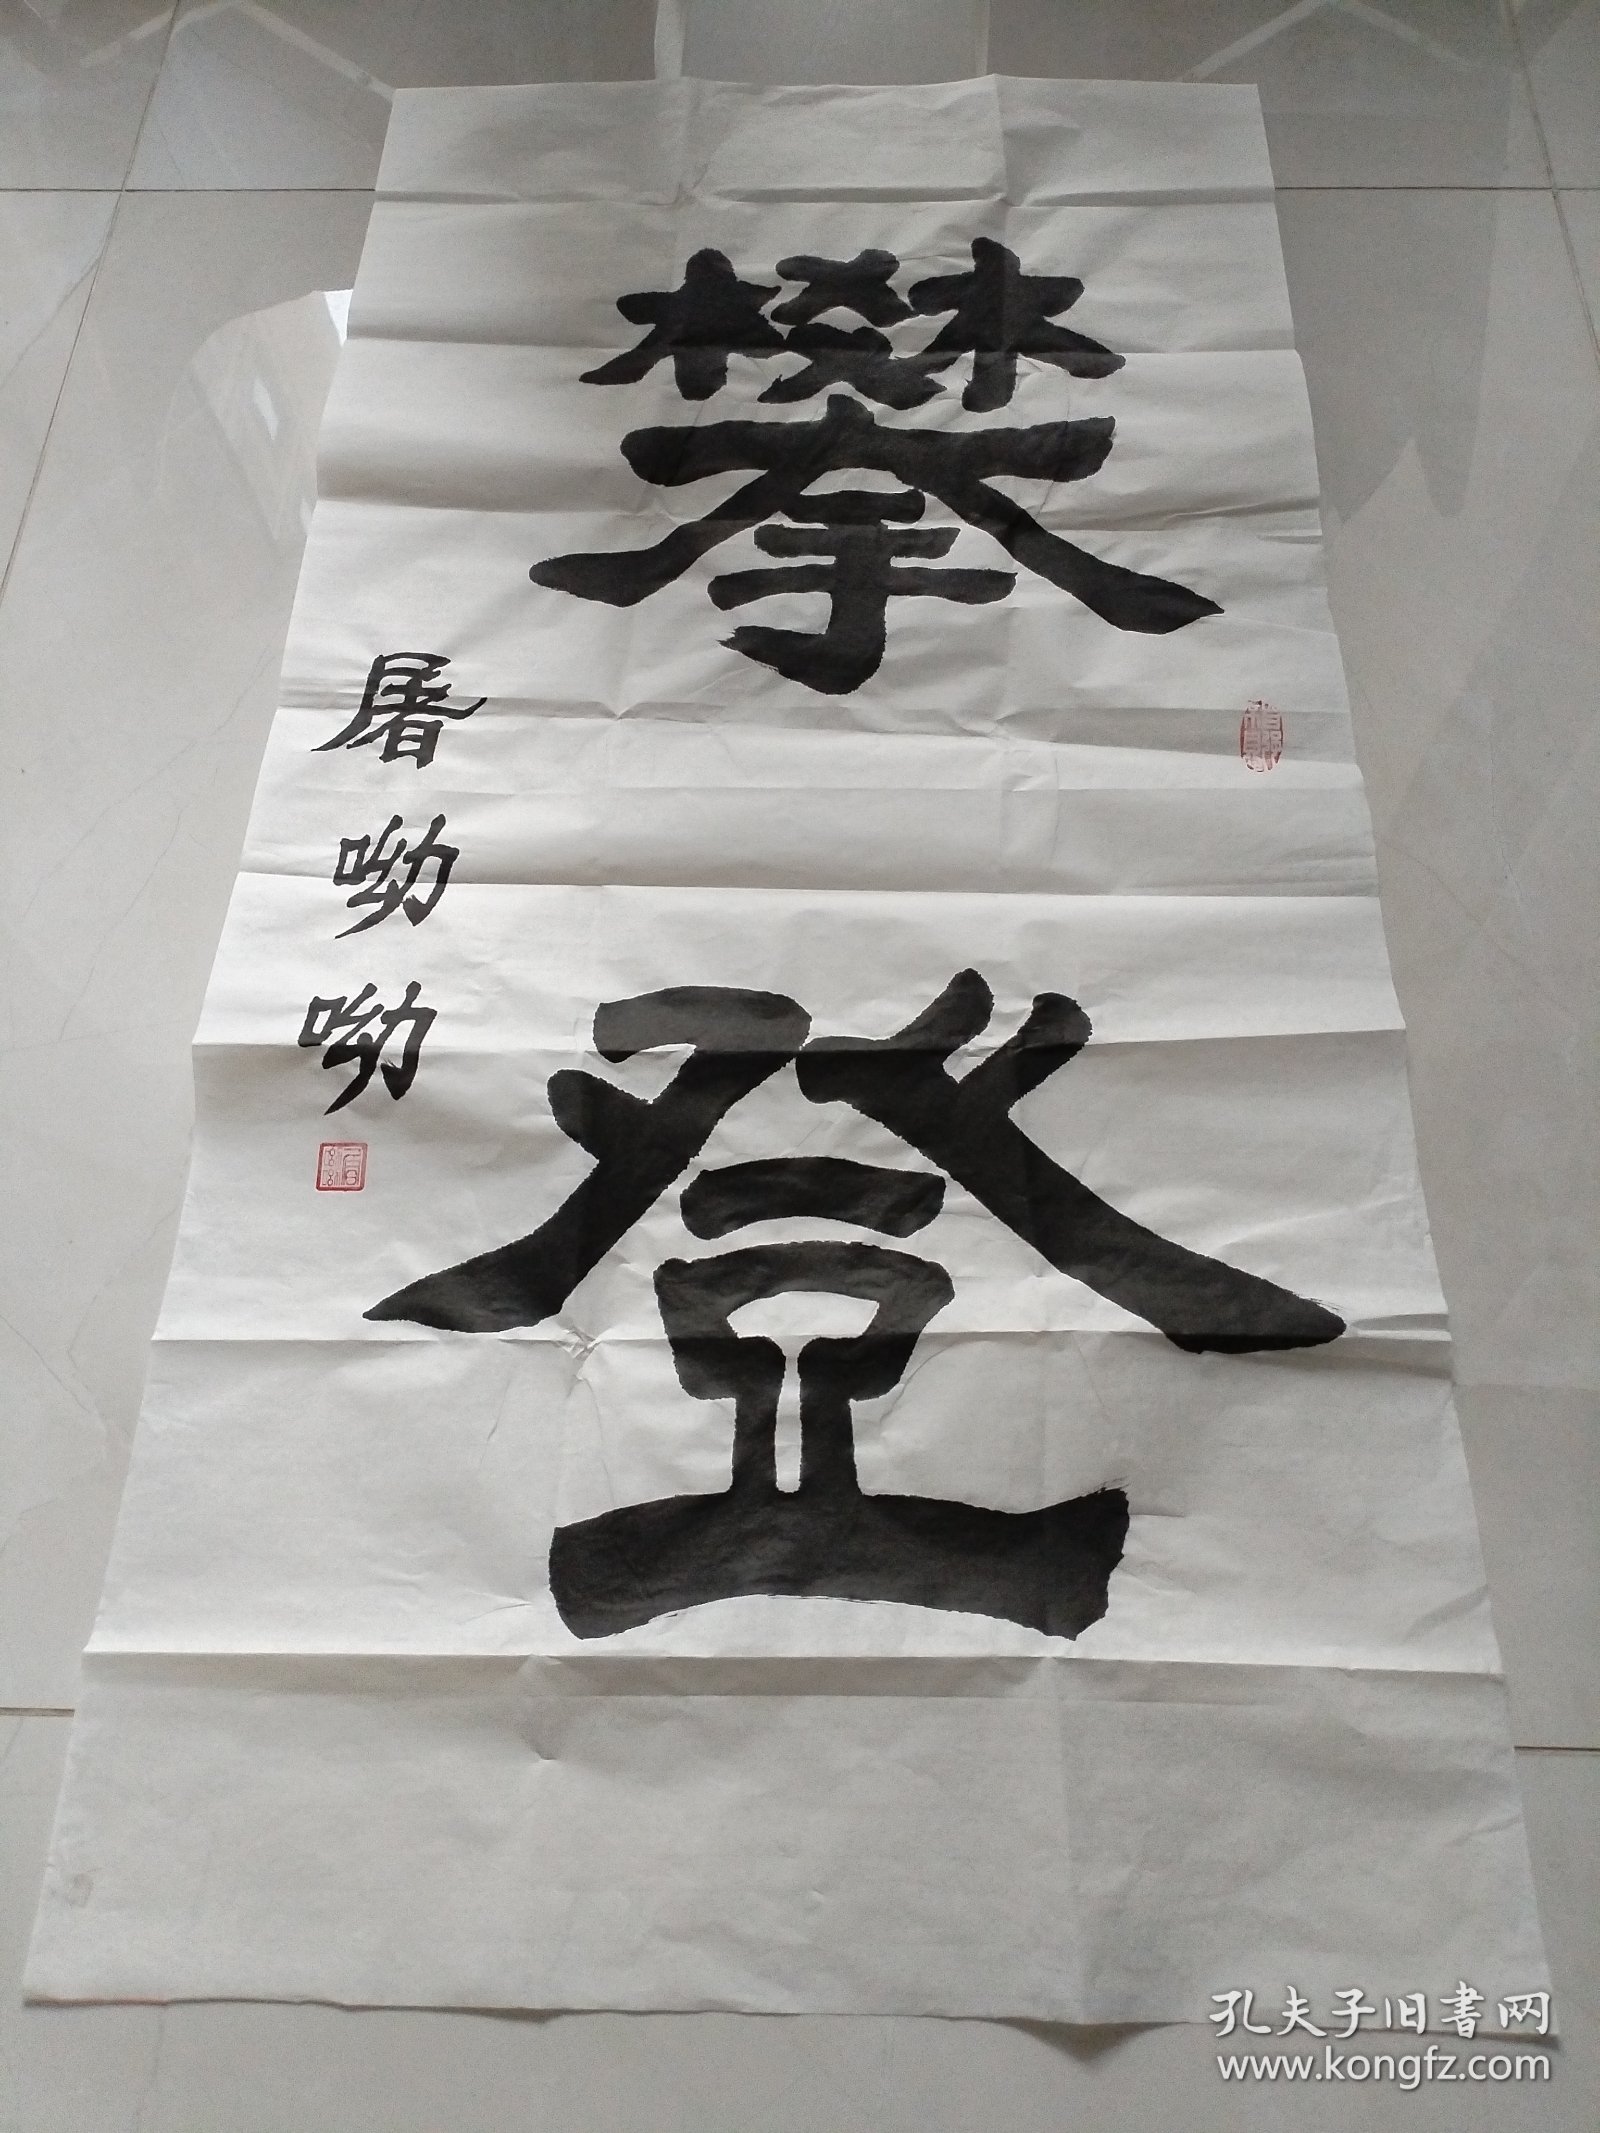 攀登
屠呦呦
孔夫子旧书网
www.kongfz.com